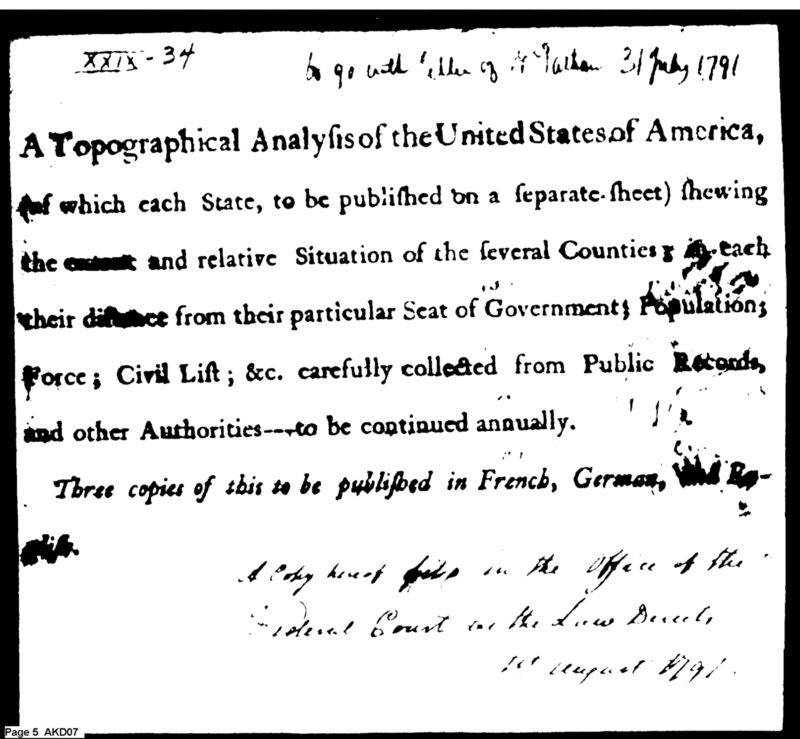 XXIX - 34
to go with letter of 31 July 1791
A Topographical Analyſis of the United States of America,
(of which each State, to be publiſhed on a ſeparate ſheet) ſhewing
the extent and relative Situation of the ſeveral Counties; in each
their diſtance from their particular Seat of Government; Population;
Force; Civil Liſt; &c. carefully collected from Public Records,
and other Authorities---to be continued annually.
Three copies of this to be publiſhed in French, German, and En-
gliſh.
A Copy hereof in the Office of the
Federal Court
1st August 1791.
Page 5 AKD07